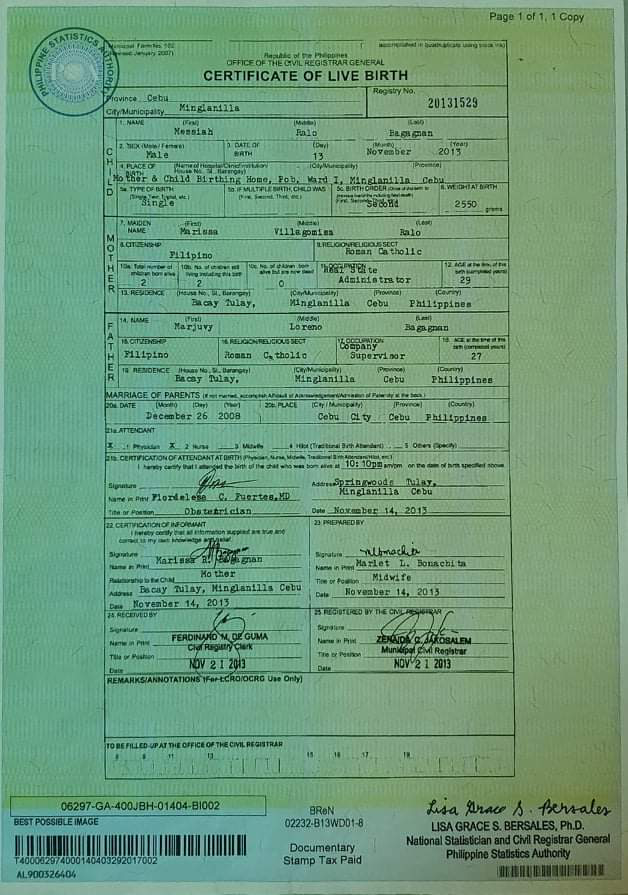 Page 1 of 1, 1 Copy
PHILIPPINE STATISTICS AUTHORITY
Municipal Form No. 102
(Revised January 2007)
(To be accomplished in quadruplicate using black ink)
Republic of the Philippines
OFFICE OF THE CIVIL REGISTRAR GENERAL
CERTIFICATE OF LIVE BIRTH
Province Cebu
Registry No.
City/Municipality Minglanilla
20131529
CHILD
1. NAME (First) (Middle) (Last)
Messiah Ralo Bagagnan
2. SEX (Male / Female) 3. DATE OF BIRTH (Day) (Month) (Year)
Male 13 November 2013
4. PLACE OF BIRTH (Name of Hospital/Clinic/Institution/ House No., St., Barangay) (City/Municipality) (Province)
Mother & Child Birthing Home, Pob. Ward I, Minglanilla Cebu
5a. TYPE OF BIRTH (Single, Twin, Triplet, etc.) 5b. IF MULTIPLE BIRTH, CHILD WAS (First, Second, Third, etc.) 5c. BIRTH ORDER (First, Second, Third, etc.) 6. WEIGHT AT BIRTH
Single Second 2550 grams
MOTHER
7. MAIDEN NAME (First) (Middle) (Last)
Marissa Villagomisa Ralo
8. CITIZENSHIP 9. RELIGION/RELIGIOUS SECT
Filipino Roman Catholic
10a. Total number of children born alive 10b. No. of children still living including this birth 10c. No. of children born alive but are now dead 11. OCCUPATION 12. AGE at the time of this birth (completed years)
2 2 0 Real State Administrator 29
13. RESIDENCE (House No., St., Barangay) (City/Municipality) (Province) (Country)
Bacay Tulay, Minglanilla Cebu Philippines
FATHER
14. NAME (First) (Middle) (Last)
Marjuvy Loreno Bagagnan
15. CITIZENSHIP 16. RELIGION/RELIGIOUS SECT 17. OCCUPATION 18. AGE at the time of this birth (completed years)
Filipino Roman Catholic Company Supervisor 27
19. RESIDENCE (House No., St., Barangay) (City/Municipality) (Province) (Country)
Bacay Tulay, Minglanilla Cebu Philippines
MARRIAGE OF PARENTS (If not married, accomplish Affidavit of Acknowledgement/Admission of Paternity at the back.)
20a. DATE (Month) (Day) (Year) 20b. PLACE (City / Municipality) (Province) (Country)
December 26 2008 Cebu City Cebu Philippines
21a. ATTENDANT
X 1 Physician X 2 Nurse 3 Midwife 4 Hilot (Traditional Birth Attendant) 5 Others (Specify)
21b. CERTIFICATION OF ATTENDANT AT BIRTH (Physician, Nurse, Midwife, Traditional Birth Attendant/Hilot, etc.)
I hereby certify that I attended the birth of the child who was born alive at 10:10pm am/pm on the date of birth specified above.
Signature
Address Springwoods Tulay,
Name in Print Flordelese C. Fuertes,MD
Minglanilla Cebu
Title or Position Obstetrician
Date November 14, 2013
22. CERTIFICATION OF INFORMANT
I hereby certify that all information supplied are true and correct to my own knowledge and belief.
Signature
Name in Print Marissa R. Bagagnan
Relationship to the Child Mother
Address Bacay Tulay, Minglanilla Cebu
Date November 14, 2013
23. PREPARED BY
Signature
Name in Print Marlet L. Bonachita
Title or Position Midwife
Date November 14, 2013
24. RECEIVED BY
Signature
Name in Print FERDINAND M. DE GUMA
Title or Position Civil Registry Clerk
Date NOV 21 2013
25. REGISTERED BY THE CIVIL REGISTRAR
Signature
Name in Print ZENAIDA C. JAKOSALEM
Title or Position Municipal Civil Registrar
Date NOV 21 2013
REMARKS/ANNOTATIONS (For LCRO/OCRG Use Only)
TO BE FILLED-UP AT THE OFFICE OF THE CIVIL REGISTRAR
8 9 11 13 15 16 17 19
06297-GA-400JBH-01404-BI002
BEST POSSIBLE IMAGE
T400062974000140403292017002
AL900326404
BReN
02232-B13WD01-8
Documentary
Stamp Tax Paid
Lisa Grace S. Bersales
LISA GRACE S. BERSALES, Ph.D.
National Statistician and Civil Registrar General
Philippine Statistics Authority